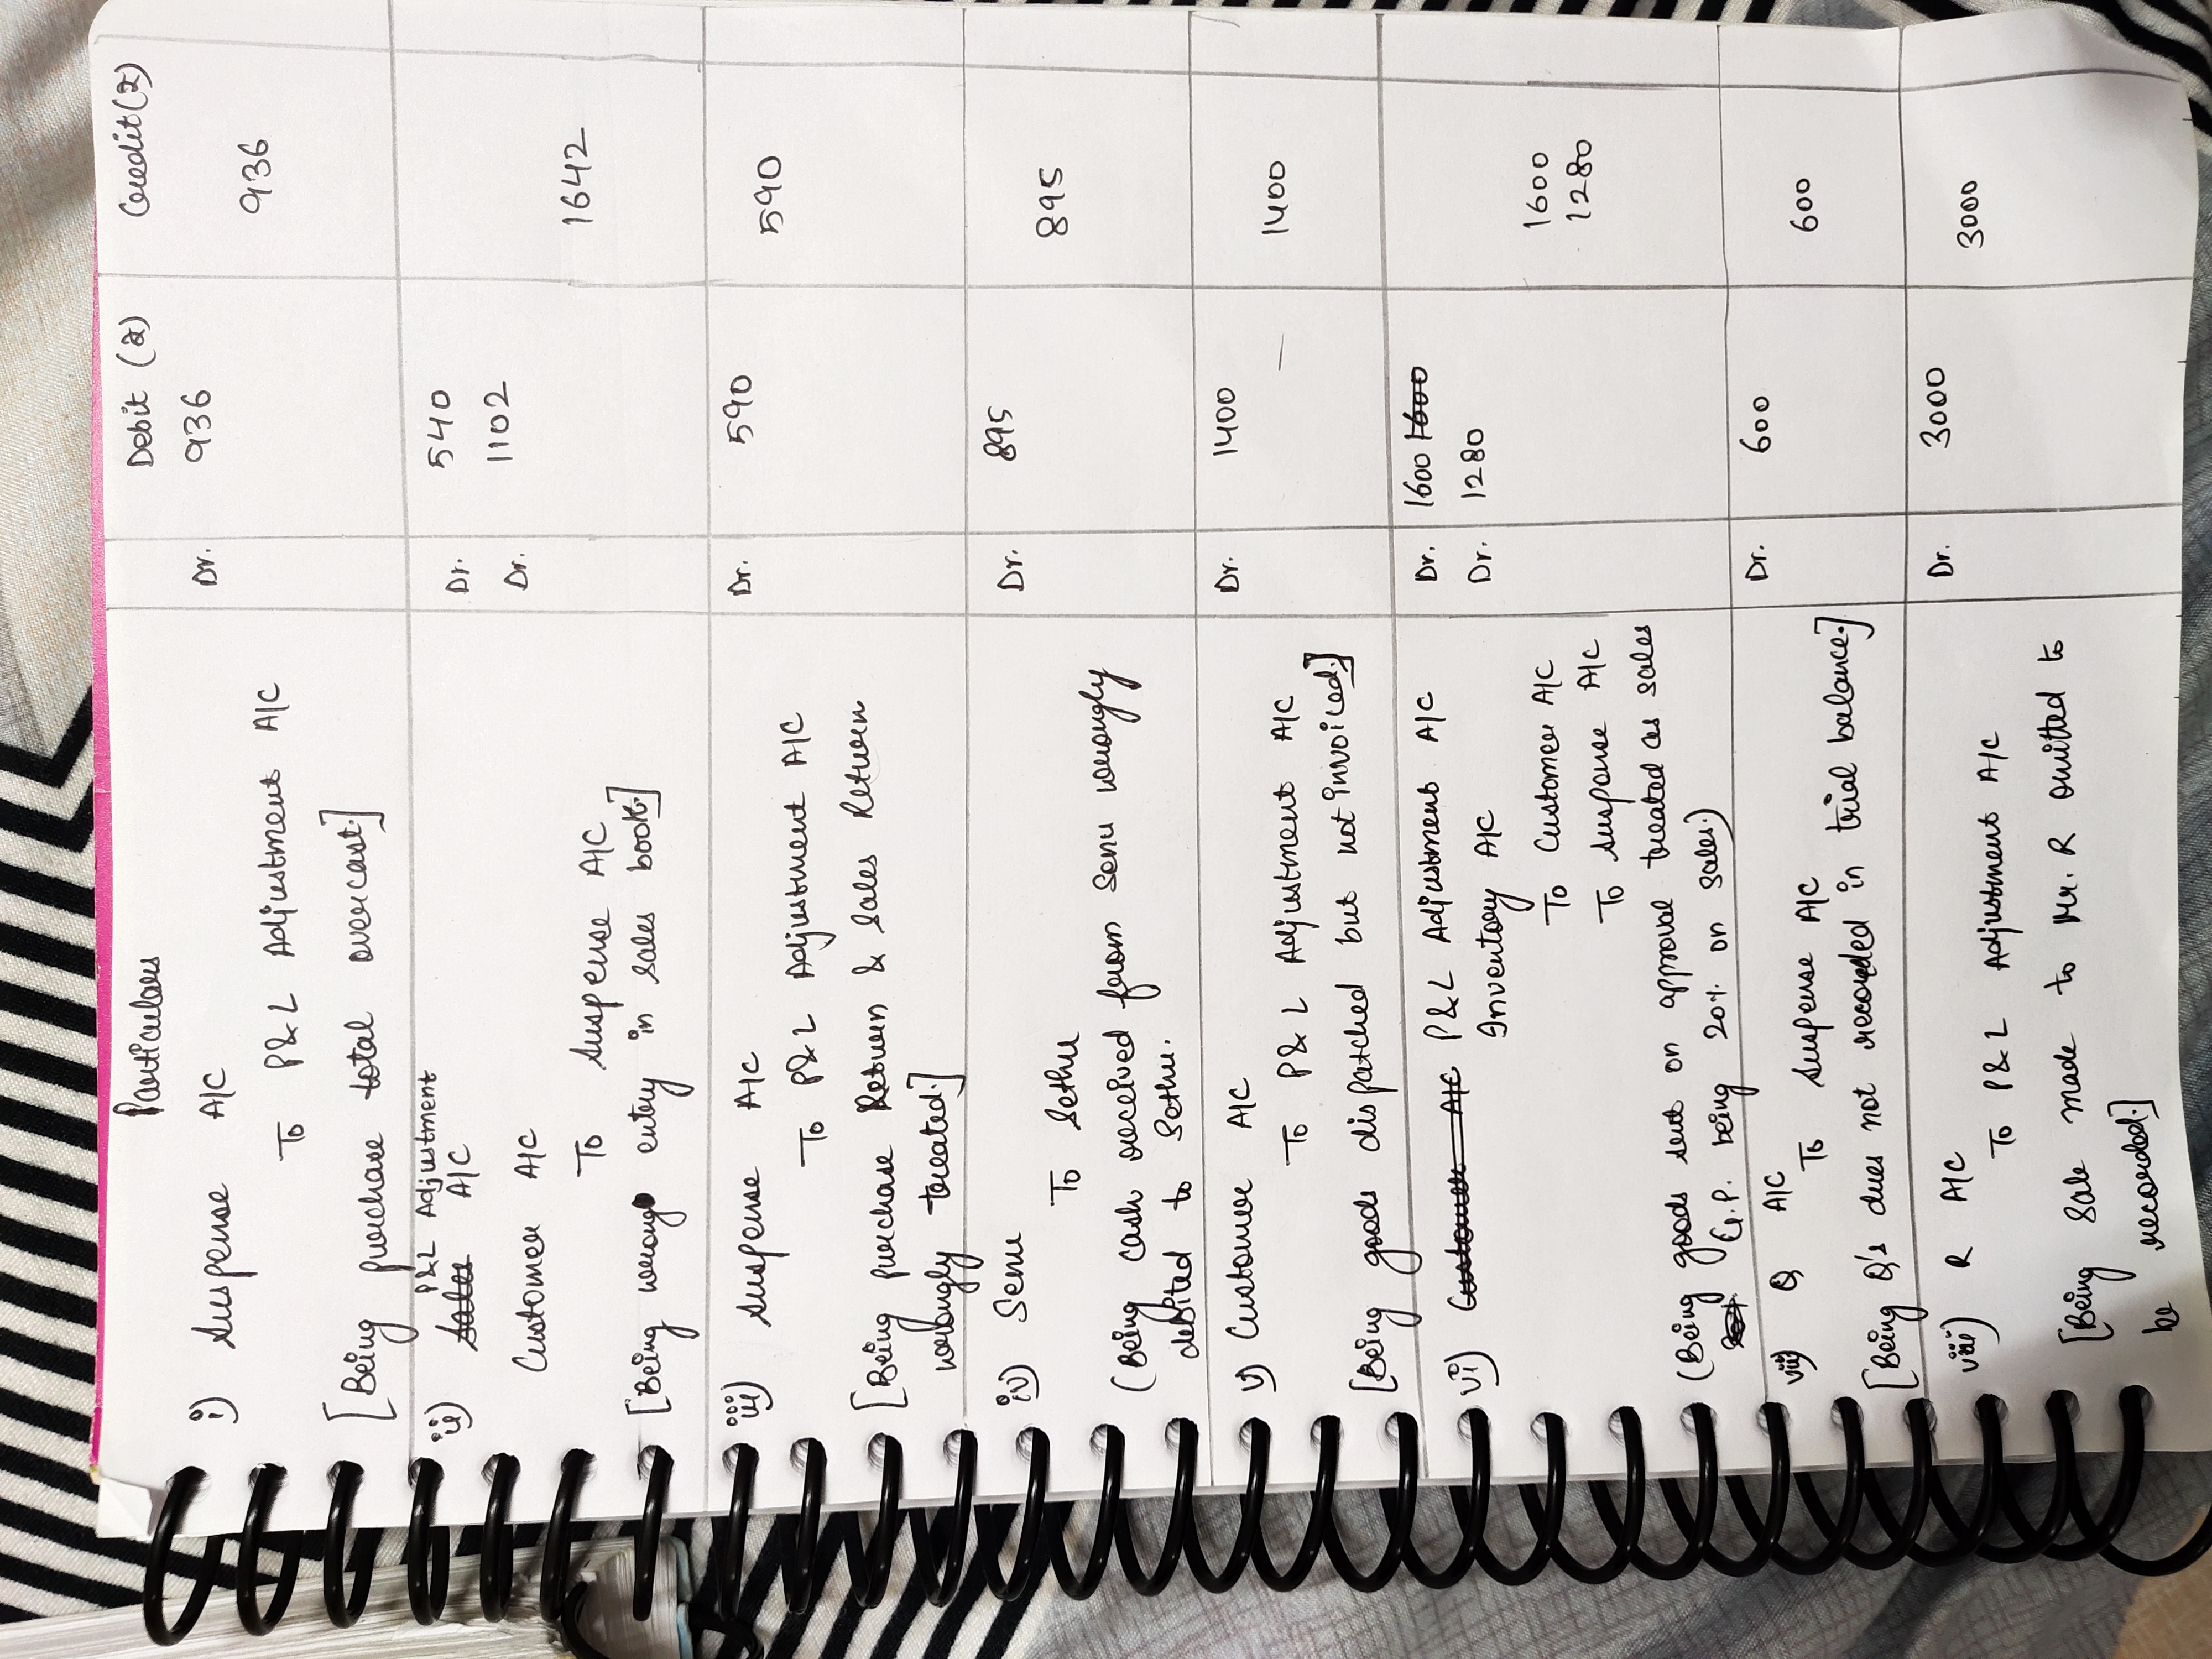 Particulars Debit (₹) Credit (₹)
i) Suspense A/C Dr. 936
To P&L Adjustment A/C 936
[Being purchase total overcast.]
ii) P&L Adjustment
Sales A/C Dr. 540
Customer A/C Dr. 1102
To Suspense A/C 1642
[Being wrong entry in sales book.]
iii) Suspense A/C Dr. 590
To P&L Adjustment A/C 590
[Being purchase Return & Sales Return
wrongly treated.]
iv) Senu Dr. 895
To Sethu 895
(Being cash received from Senu wrongly
debited to Sethu.
v) Customer A/C Dr. 1400
To P&L Adjustment A/C 1400
[Being goods dispatched but not invoiced.]
vi) Customer A/C P&L Adjustment A/C Dr. 1600 1600
Inventory A/C Dr. 1280
To Customer A/C 1600
To Suspense A/C 1280
(Being goods sent on approval treated as sales
G.P. being 20% on sales.)
vii) Q A/C Dr. 600
To Suspense A/C 600
[Being Q's dues not recorded in trial balance.]
viii) R A/C Dr. 3000
To P&L Adjustment A/C 3000
[Being Sale made to Mr. R omitted to
be recorded.]